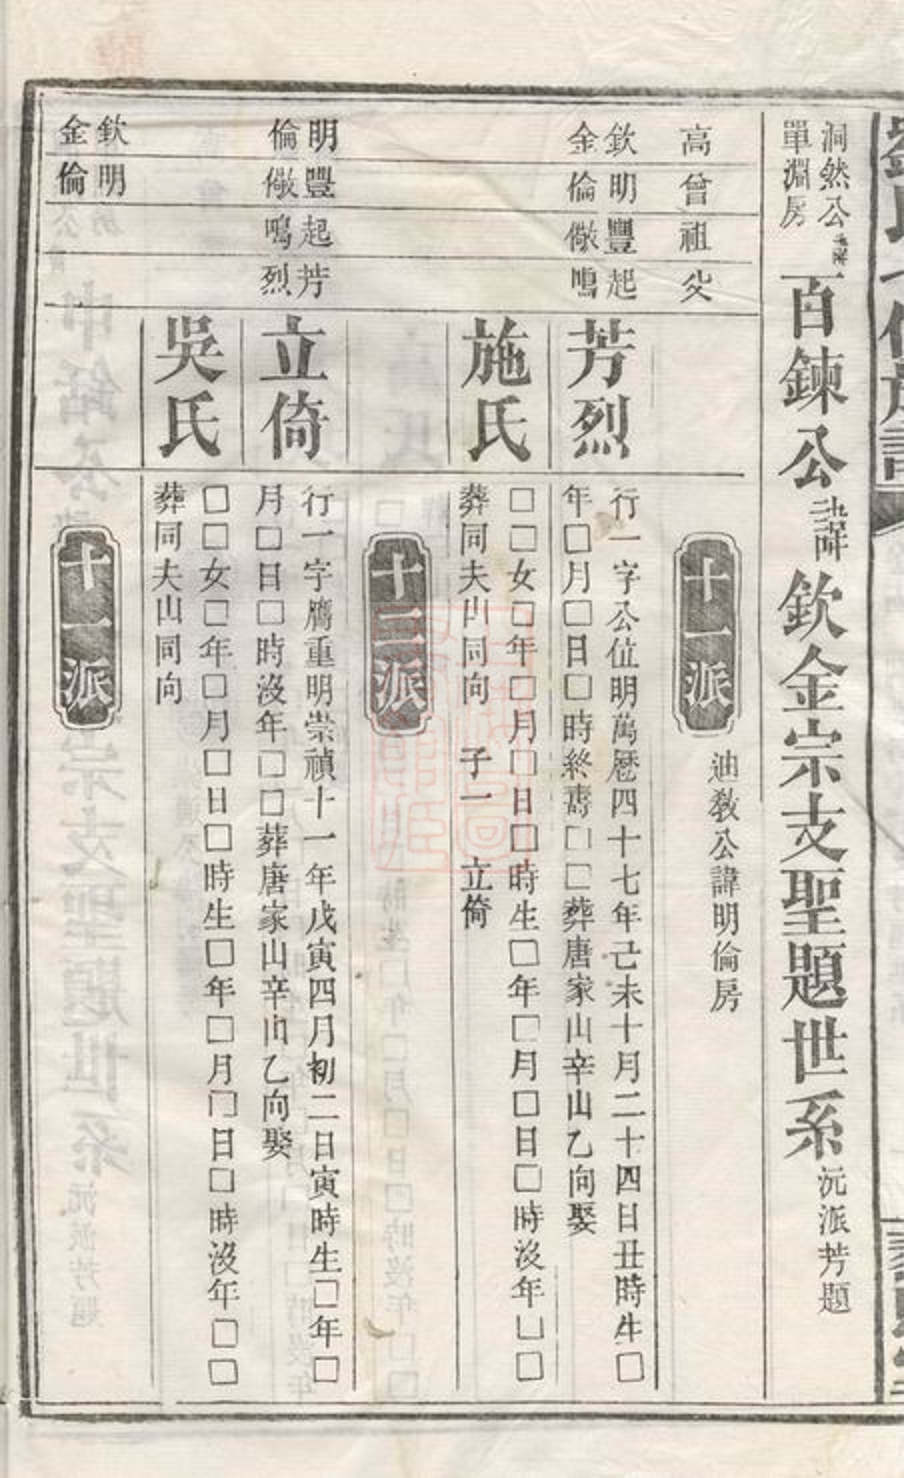 洞然公
單淵房
百鍊公諱欽金宗支聖題世系
沅派芳題
高曾祖父
十一派
迪教公諱明倫房
欽明豐起
金倫儆鳴
芳烈
行一字公位明萬曆四十七年己未十月二十四日丑時生□
年□月□日□時終壽□□葬唐家山辛山乙向娶
施氏
□□女□年□月□日□時生□年□月□日□時沒年□□
葬同夫山同向 子一 立倚
十三派
明豐起芳
倫儆鳴烈
立倚
行一字膺重明崇禎十一年戊寅四月初二日寅時生□年□
月□日□時沒年□□葬唐家山辛山乙向娶
吳氏
□□女□年□月□日□時生□年□月□日□時沒年□□
葬同夫山同向
欽明
金倫
十一派